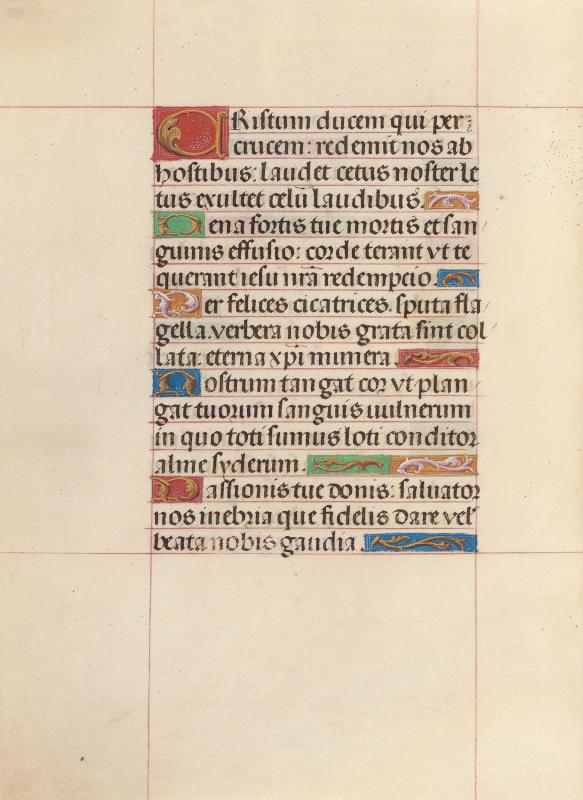 CRistum ducem qui per
crucem: redemit nos ab
hostibus: laudet cetus noster le
tus exultet celū laudibus.
Pena fortis tue mortis et san
guinis effusio: corde terant vt te
querant iesu nrā redempcio.
Per felices cicatrices. sputa fla
gella. verbera nobis grata sint col
lata: eterna xp̄i munera.
Nostrum tangat cor vt plan
gat tuorum sanguis uulnerum
in quo toti sumus loti conditor
alme syderum.
Passionis tue donis: saluator
nos inebria que fidelis dare velˢ
beata nobis gaudia.